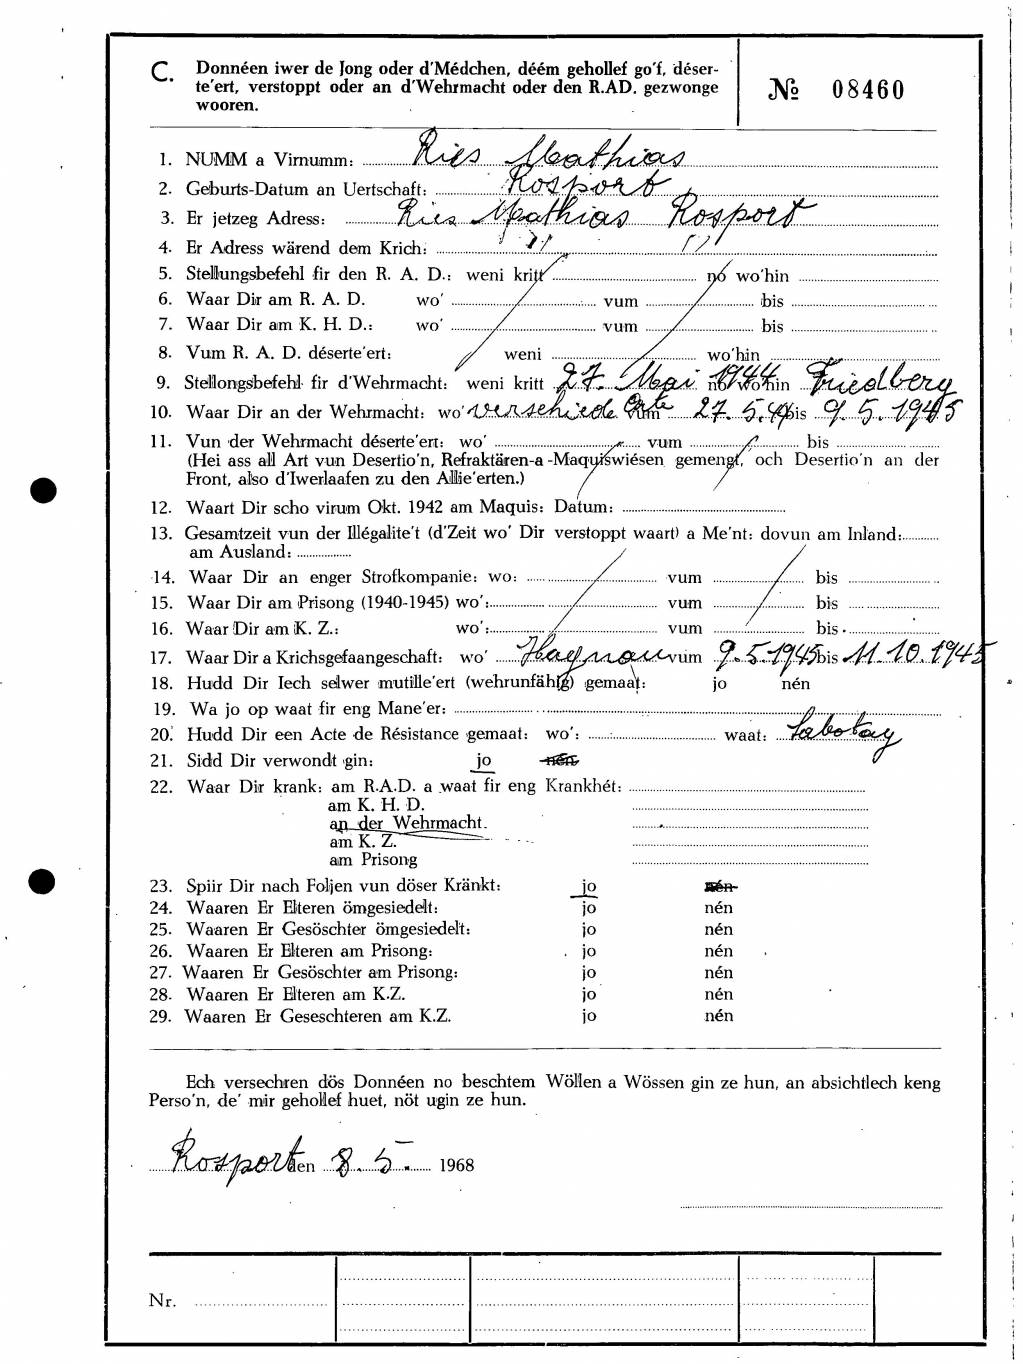 C. Donnéen iwer de Jong oder d'Médchen, déém gehollef go'f, déser-
te'ert, verstoppt oder an d'Wehrmacht oder den R.AD. gezwonge
wooren.
№ 08460
1. NUMM a Virnumm: Ries Mathias
2. Geburts-Datum an Uertschaft: Rosport
3. Er jetzeg Adress: Ries Mathias Rosport
4. Er Adress wärend dem Krich: " "
5. Stellungsbefehl fir den R. A. D.: weni kritt no wo'hin
6. Waar Dir am R. A. D. wo' vum bis
7. Waar Dir am K. H. D.: wo' vum bis
8. Vum R. A. D. déserte'ert: weni wo'hin
9. Stellongsbefehl fir d'Wehrmacht: weni kritt 27. Mai 1944 no wo'hin Friedberg
10. Waar Dir an der Wehrmacht: wo' verschiede Orte vum 27. 5. 44 bis 9. 5. 1945
11. Vun der Wehrmacht déserte'ert: wo' vum bis
(Hei ass all Art vun Desertio'n, Refraktären-a-Maquiswiésen gemengt, och Desertio'n an der
Front, also d'Iwerlaafen zu den Allie'erten.)
12. Waart Dir scho virum Okt. 1942 am Maquis: Datum:
13. Gesamtzeit vun der Illégalite't (d'Zeit wo' Dir verstoppt waart) a Me'nt: dovun am Inland:
am Ausland:
14. Waar Dir an enger Strofkompanie: wo: vum bis
15. Waar Dir am Prisong (1940-1945) wo': vum bis
16. Waar Dir am K. Z.: wo': vum bis
17. Waar Dir a Krichsgefaangeschaft: wo' Hagnau vum 9. 5. 1945 bis 11. 10. 1945
18. Hudd Dir Iech selwer mutille'ert (wehrunfähig) gemaat: jo nén
19. Wa jo op waat fir eng Mane'er:
20. Hudd Dir een Acte de Résistance gemaat: wo': waat: Sabotag
21. Sidd Dir verwondt gin: jo nén
22. Waar Dir krank: am R.A.D. a waat fir eng Krankhét:
am K. H. D.
an der Wehrmacht.
am K. Z.
am Prisong
23. Spiir Dir nach Foljen vun döser Kränkt: jo nén
24. Waaren Er Elteren ömgesiedelt: jo nén
25. Waaren Er Gesöschter ömgesiedelt: jo nén
26. Waaren Er Elteren am Prisong: jo nén
27. Waaren Er Gesöschter am Prisong: jo nén
28. Waaren Er Elteren am K.Z. jo nén
29. Waaren Er Geseschteren am K.Z. jo nén
Ech versechren dös Donnéen no beschtem Wöllen a Wössen gin ze hun, an absichtlech keng
Perso'n, de' mir gehollef huet, nöt ugin ze hun.
Rosport den 8. 5. 1968
Nr.